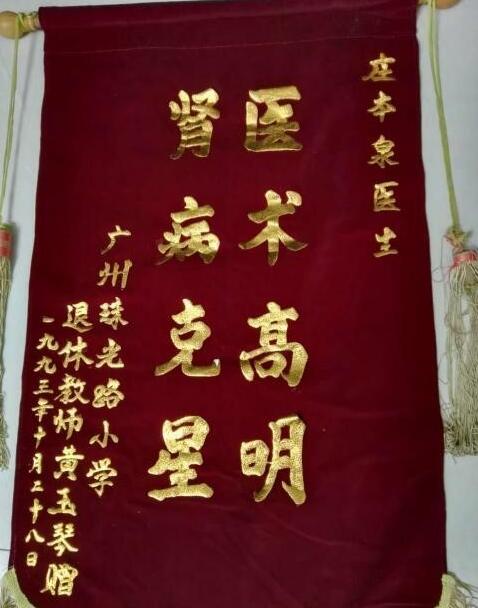 庄本泉医生
医术高明
肾病克星
广州珠光路小学
退休教师黄玉琴赠
一九九三年十月二十八日